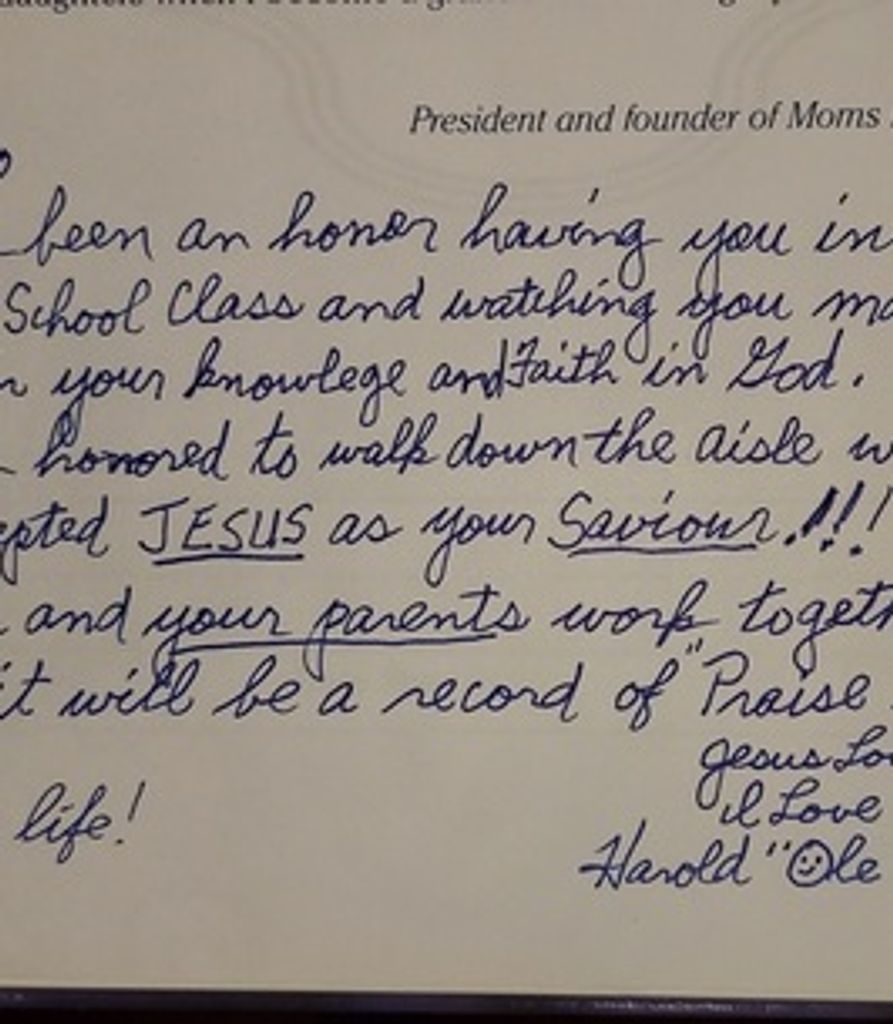 President and founder of Moms
been an honor having you in
School Class and watching you
your knowlege and Faith in God.
honored to walk down the aisle
JESUS as your Saviour.!!!
and your parents work
it will be a record of "Praise
Jesus
I Love
life!
Harold "☺le